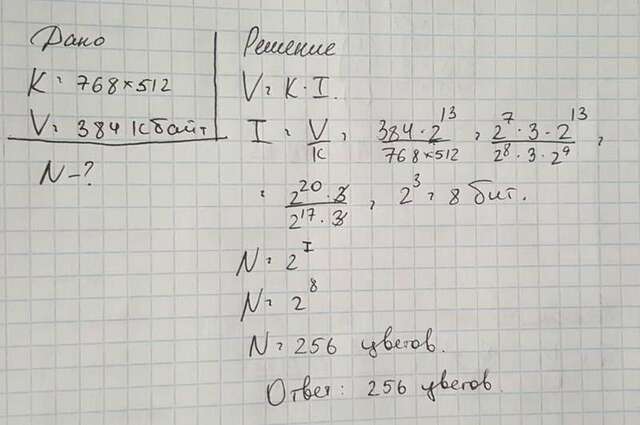 Дано
K = 768×512
V = 384 Кбайт
N - ?
Решение
V = K · I.
I = V/K = 384 · 2^13 / 768×512 = 2^7 · 3 · 2^13 / 2^8 · 3 · 2^9 =
= 2^20 · 3 / 2^17 · 3 = 2^3 = 8 бит.
N = 2^I
N = 2^8
N = 256 цветов.
Ответ: 256 цветов.